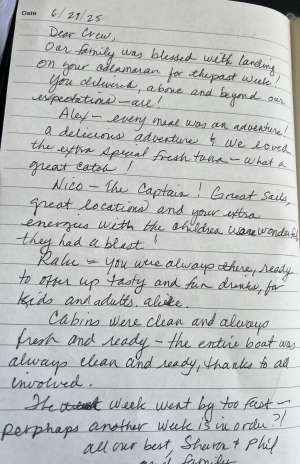 Date 6/27/25
Dear Crew,
Our family was blessed with landing
on your catamaran for the past week!
You delivered, above and beyond our
expectations – all!
Alex – every meal was an adventure!
a delicious adventure & we loved
the extra special fresh tuna – what a
great catch!
Nico – the Captain! Great Sails,
great locations and your extra
energies with the children were wonderful
they had a blast!
– you were always there, ready
to offer up tasty and fun drinks, for
kids and adults alike.
Cabins were clean and always
fresh and ready – the entire boat was
always clean and ready, thanks to all
involved.
The week went by too fast –
perphaps another week is in order?!
all our best, Sharon & Phil
family